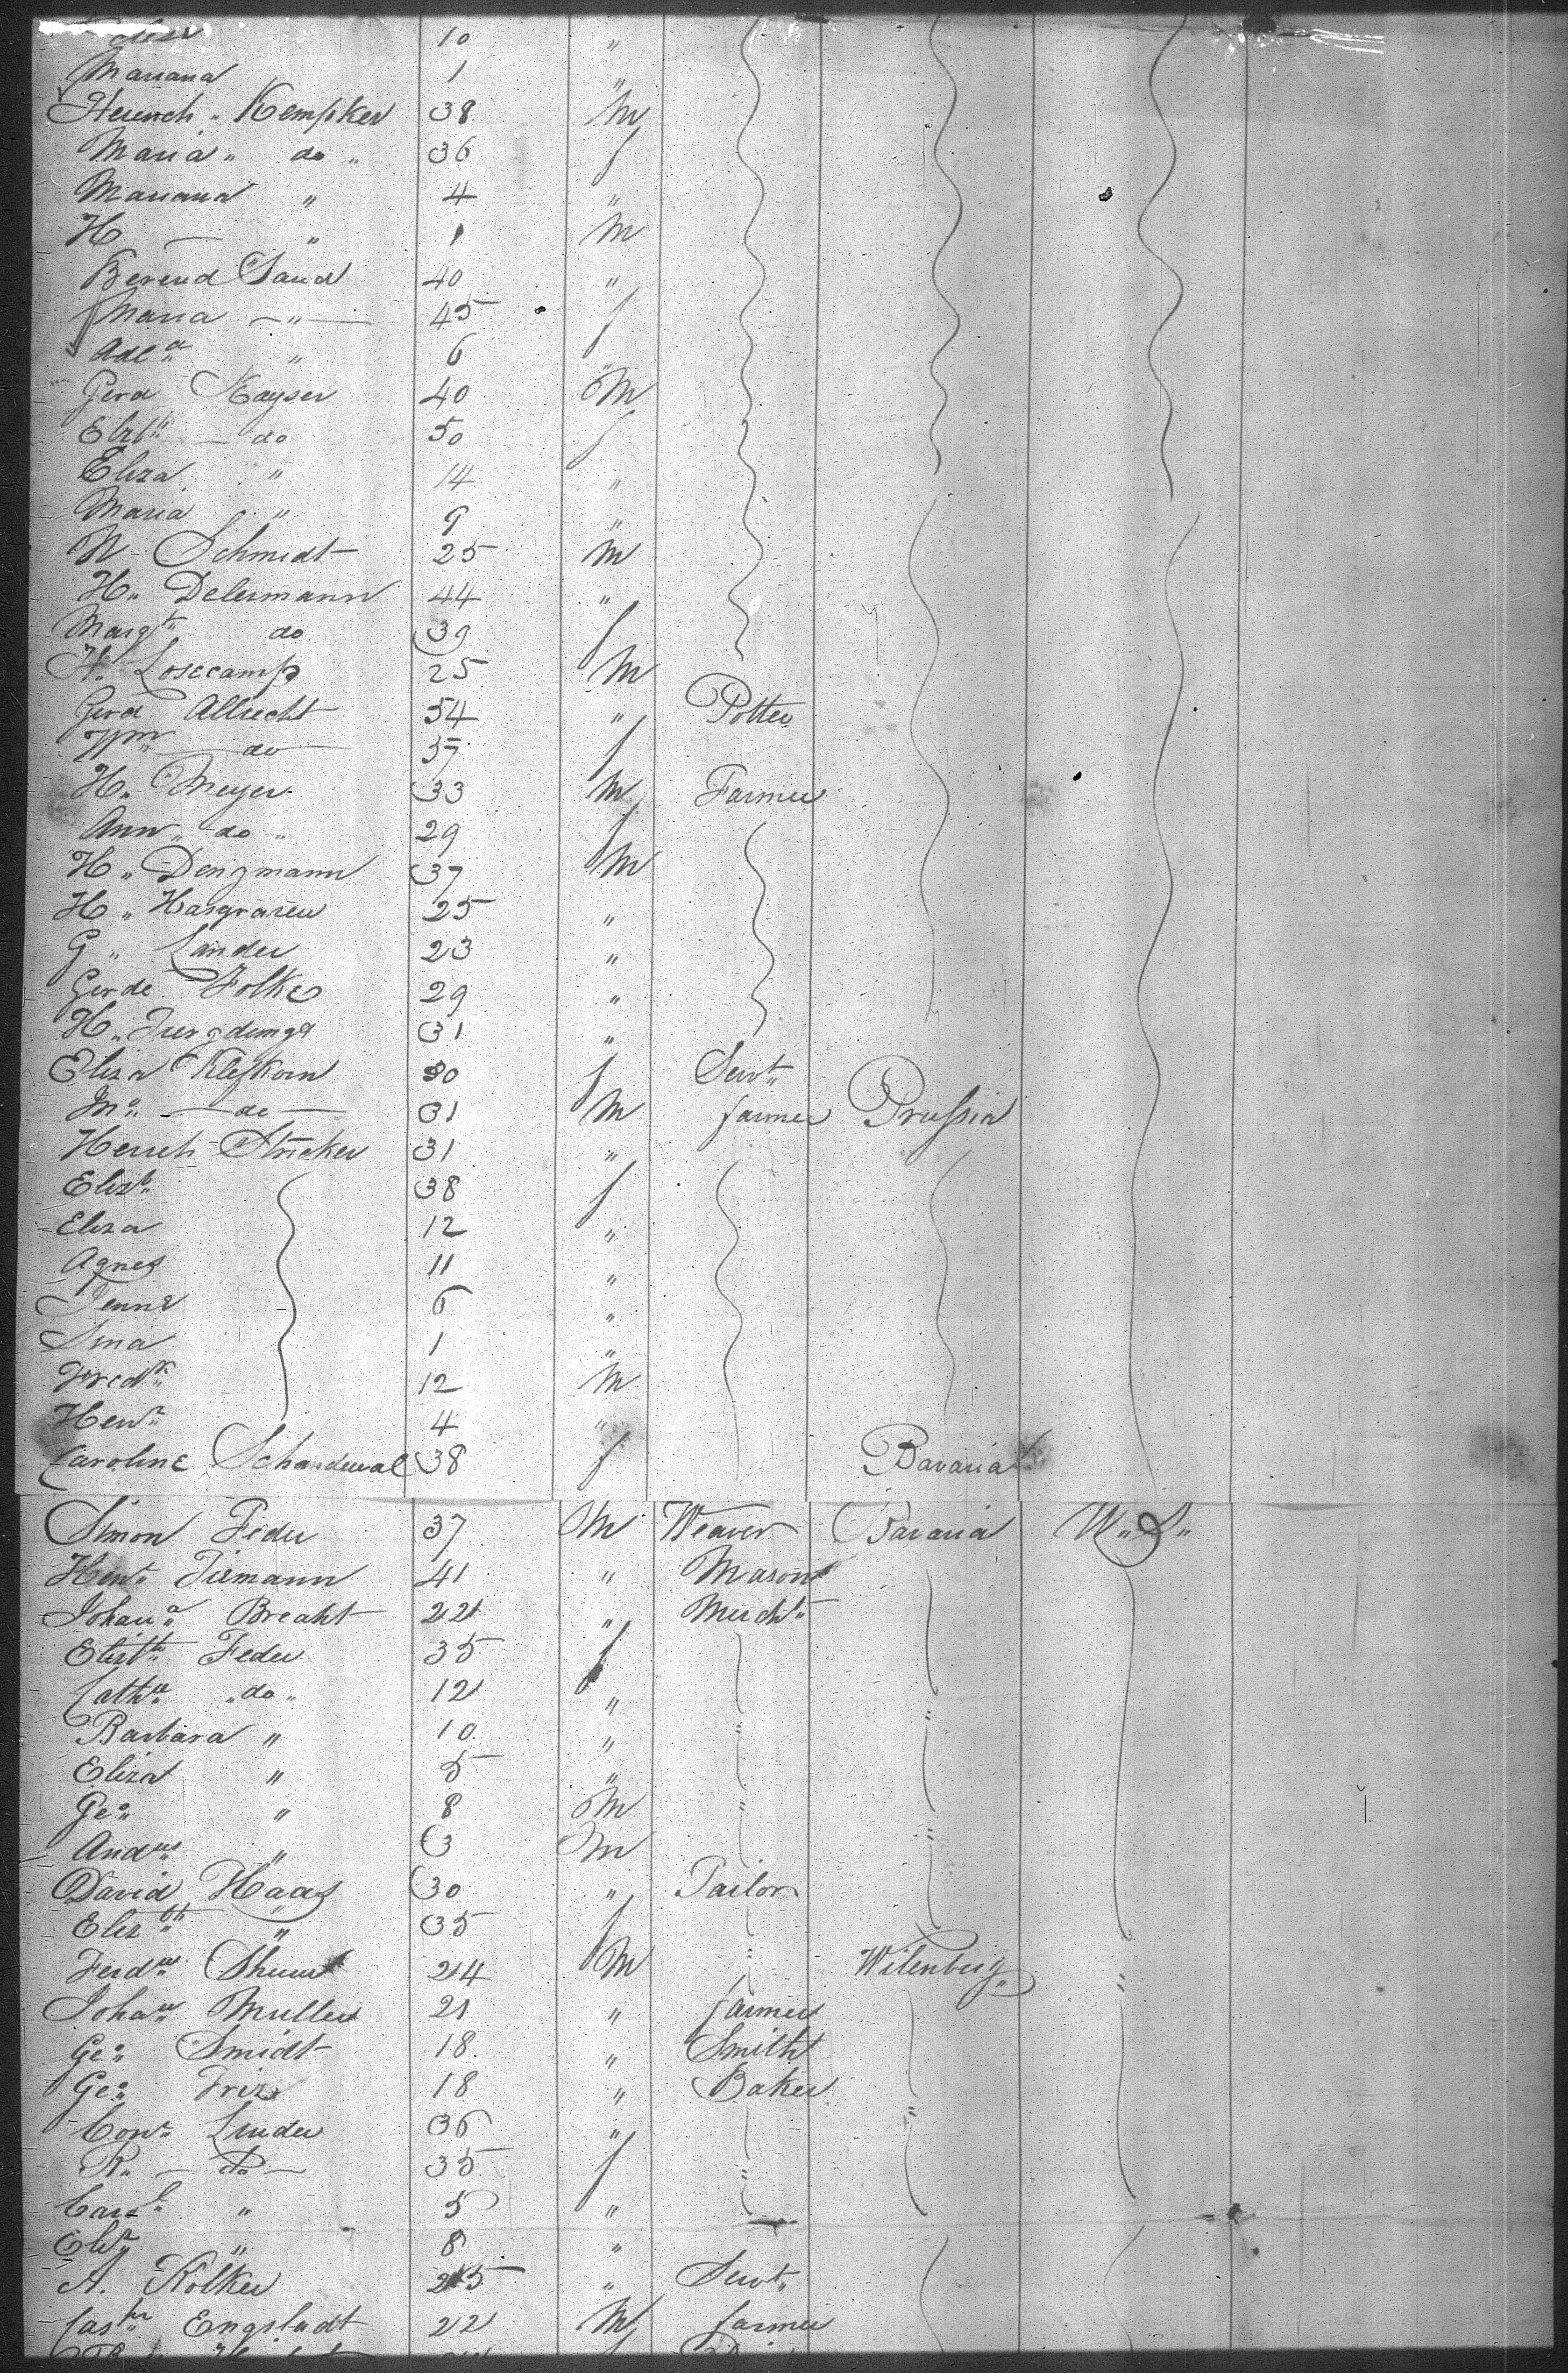 10 "
Mariana 1 "
Heinrch " Kempker 38 M
Maria " do " 36 f
Mariana " 4 "
H — " 1 M
Berend Sand 40 "
Maria — " — 45 f
Adl a " 6 "
Gerd Kayser 40 M
Elizth — do 50 f
Eliza " 14 "
Maria " 9 "
W Schmidt 25 M
H" Delermann 44 "
Margt" do 39 f
H. Losecamp 25 M
Gerd Albrecht 54 " Potter
Wm" — do — 57 f
H. Meyer 33 M Farmer
Ann " do " 29 f
H " Dengmann 37 M
H " Hasgrasen 25 "
G " Lander 23 "
Gerde Folke 29 "
H. 31 "
Eliza Klefkorn 30 f Servt"
Jno" — do — 31 M farmer Prussia
Henrch Stricker 31 "
Elizh" 38 f
Eliza 12 "
Agnes 11 "
Jenne 6 "
Sina 1 "
Fredk" 12 M
Henr" 4 "
Caroline 38 f Bavaria
Simon Feder 37 M Weaver Bavaria U"S"
Henr" Tiemann 41 " Mason
Johana" Breaht 22 " Mercht"
Elizth" Feder 35 f
Catha" "do" 12 "
Barbara " 10 "
Eliza " 5 "
Geo" " 8 M
Andws" " 3 M
David Haas 30 " Tailor
Elizbth" " 35 f
Ferdn" 24 M Witenberg"
Johan" Muller 21 " farmer
Geo" Smidt 18 " Smith
Geo" Friz 18 " Baker
Conr" Linder 36 "
R" — do — 35 f
Carl" " 5 "
Elza " 8 "
A. Kolker 25 " Servt"
Caspr" Engstadt 22 M farmer